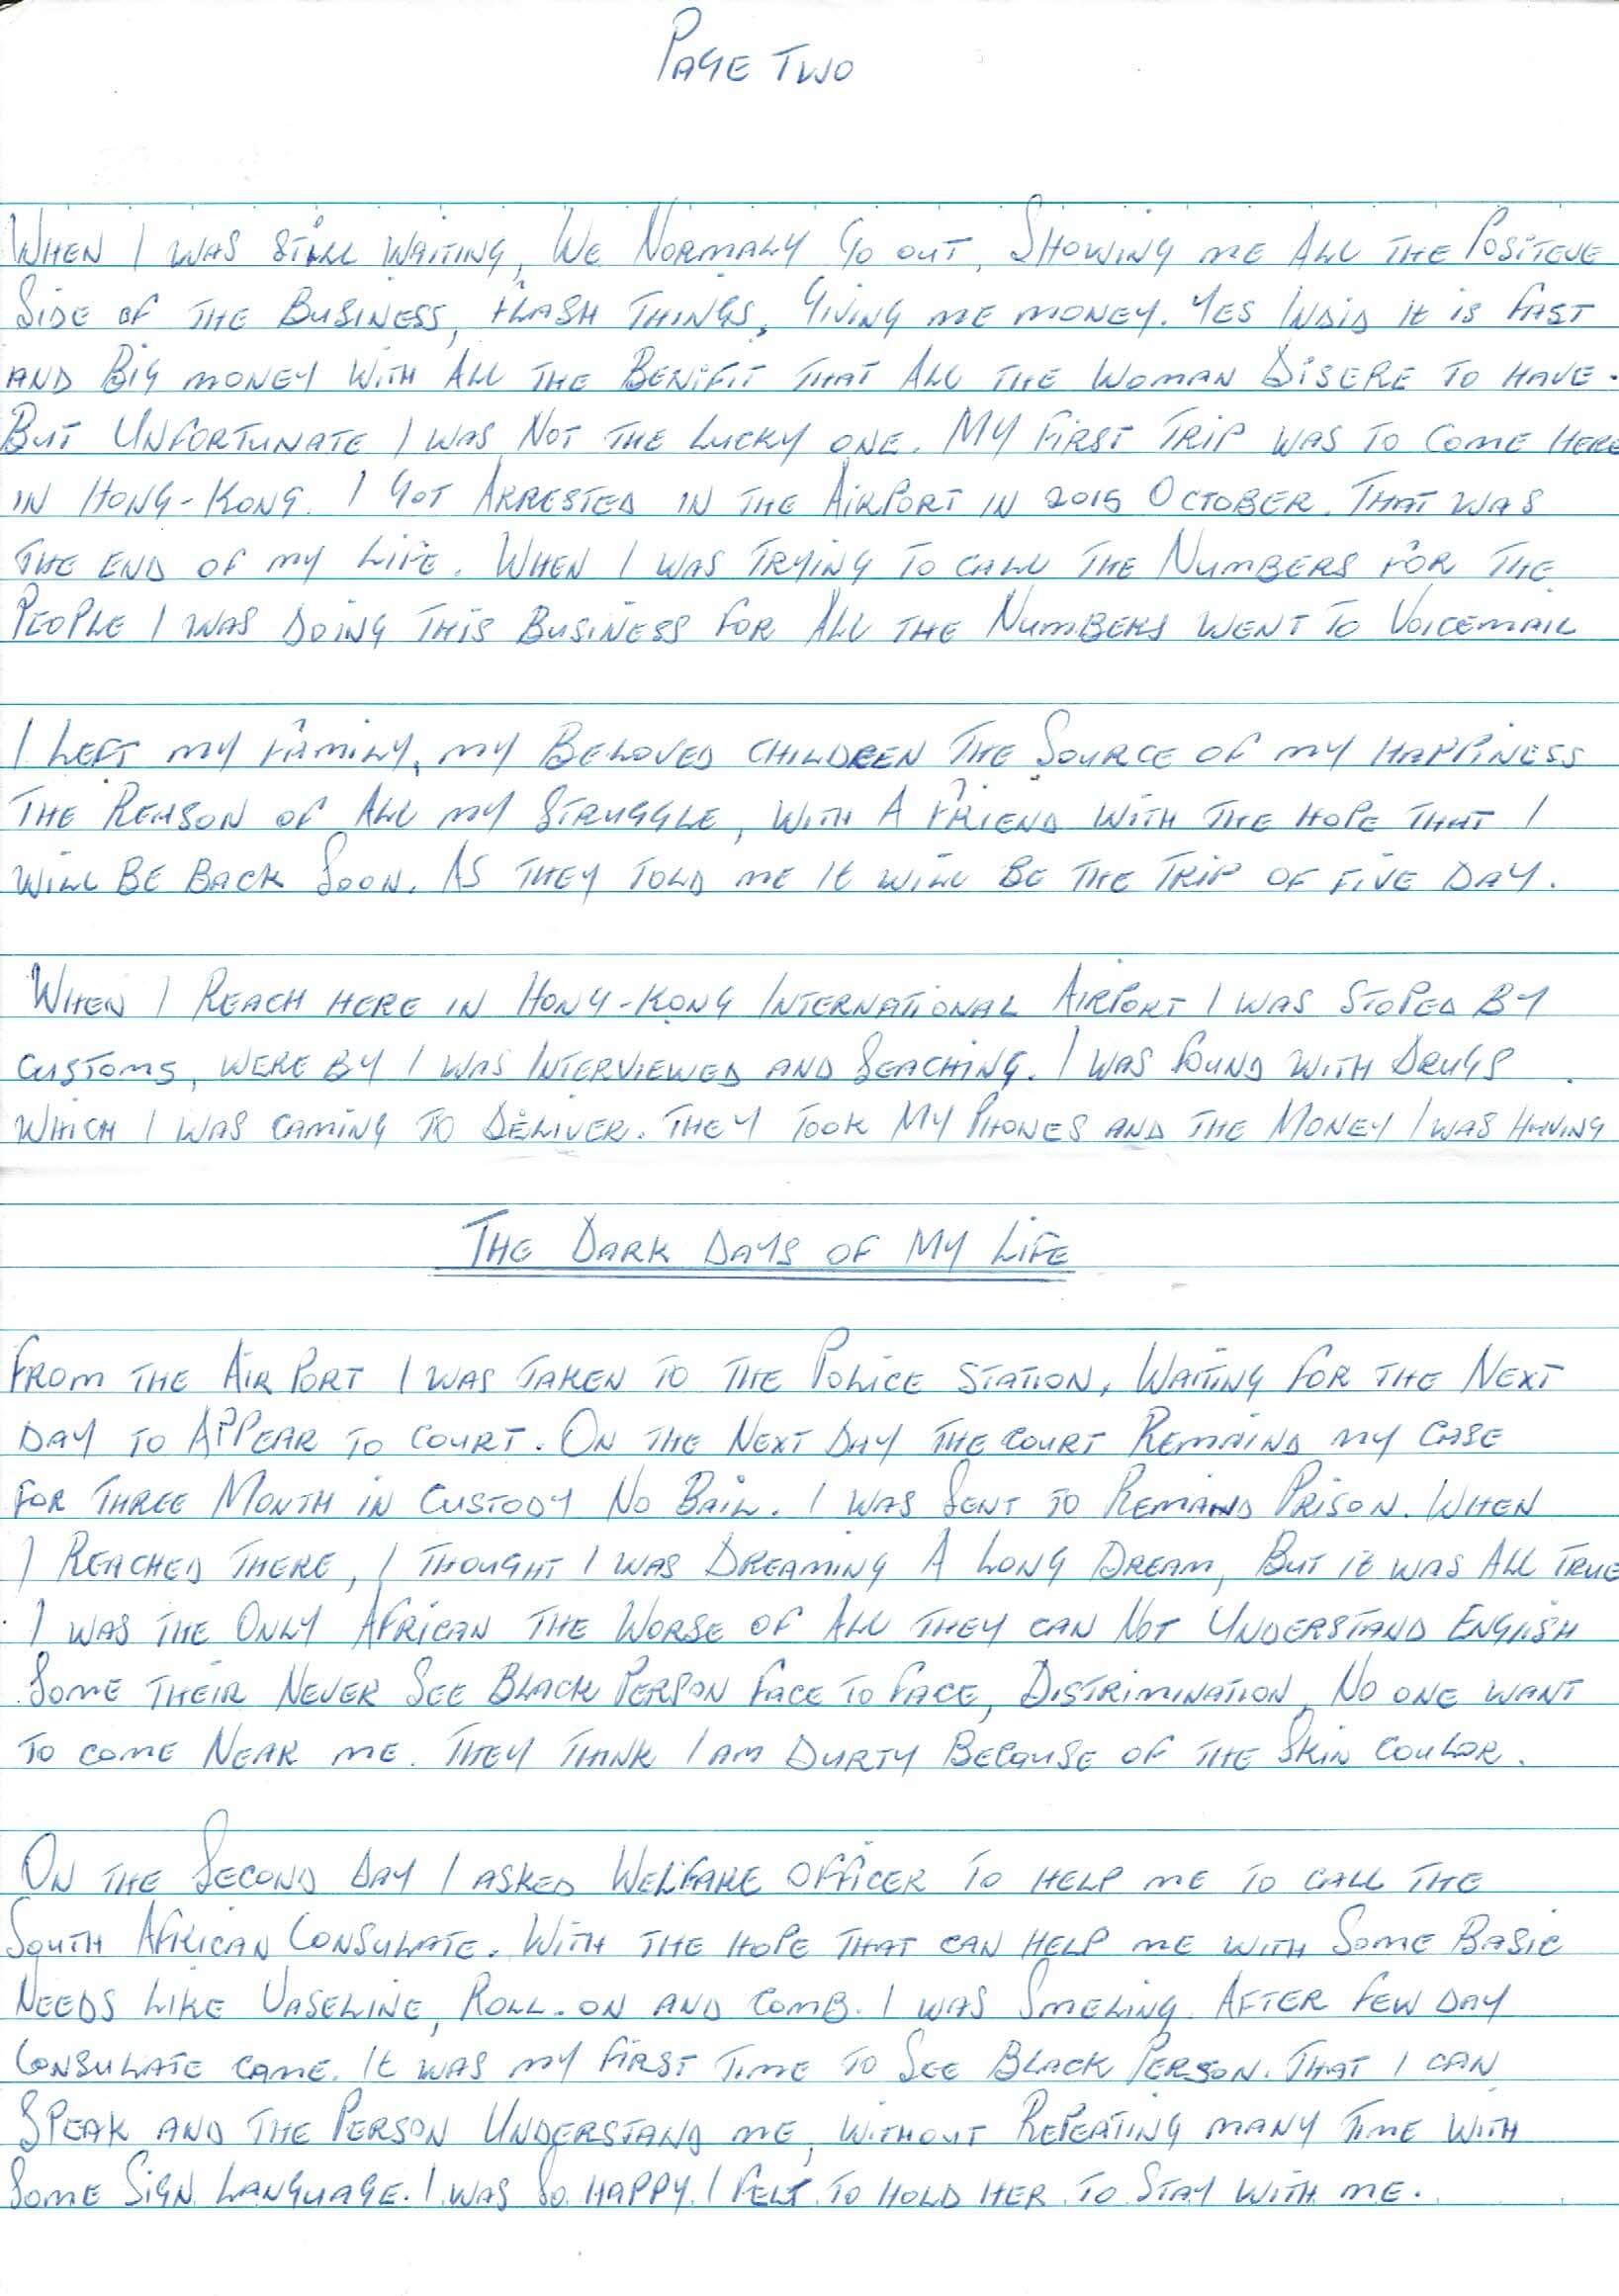 PAGE TWO
WHEN I WAS STILL WAITING, WE NORMALY GO OUT, SHOWING ME ALL THE POSITEVE
SIDE OF THE BUSINESS, FLASH THINGS, GIVING ME MONEY. YES INDID IT IS FAST
AND BIG MONEY WITH ALL THE BENIFIT THAT ALL THE WOMAN DISERE TO HAVE.
BUT UNFORTUNATE I WAS NOT THE LUCKY ONE. MY FIRST TRIP WAS TO COME HERE
IN HONG-KONG. I GOT ARRESTED IN THE AIRPORT IN 2015 OCTOBER. THAT WAS
THE END OF MY LIFE. WHEN I WAS TRYING TO CALL THE NUMBERS FOR THE
PEOPLE I WAS DOING THIS BUSINESS FOR ALL THE NUMBERS WENT TO VOICEMAIL
I LEFT MY FAMILY, MY BELOVED CHILDREEN THE SOURCE OF MY HAPPINESS
THE REASON OF ALL MY STRUGGLE, WITH A FRIEND WITH THE HOPE THAT I
WILL BE BACK SOON. AS THEY TOLD ME IT WILL BE THE TRIP OF FIVE DAY.
WHEN I REACH HERE IN HONG-KONG INTERNATIONAL AIRPORT I WAS STOPED BY
CUSTOMS, WERE BY I WAS INTERVIEWED AND SEACHING. I WAS FOUND WITH DRUGS
WHICH I WAS CAMING TO DELIVER. THEY TOOK MY PHONES AND THE MONEY I WAS HAVING
THE DARK DAYS OF MY LIFE
FROM THE AIR PORT I WAS TAKEN TO THE POLICE STATION, WAITING FOR THE NEXT
DAY TO APPEAR TO COURT. ON THE NEXT DAY THE COURT REMAIND MY CASE
FOR THREE MONTH IN CUSTODY NO BAIL. I WAS SENT TO REMAND PRISON. WHEN
I REACHED THERE, I THOUGHT I WAS DREAMING A LONG DREAM, BUT IT WAS ALL TRUE
I WAS THE ONLY AFRICAN THE WORSE OF ALL THEY CAN NOT UNDERSTAND ENGLISH
SOME THEIR NEVER SEE BLACK PERSON FACE TO FACE, DISTRIMINATION, NO ONE WANT
TO COME NEAR ME. THEY THINK I AM DURTY BECAUSE OF THE SKIN COULOR.
ON THE SECOND DAY I ASKED WELFARE OFFICER TO HELP ME TO CALL THE
SOUTH AFRICAN CONSULATE. WITH THE HOPE THAT CAN HELP ME WITH SOME BASIC
NEEDS LIKE VASELINE, ROLL-ON AND COMB. I WAS SMELING. AFTER FEW DAY
CONSULATE CAME. IT WAS MY FIRST TIME TO SEE BLACK PERSON. THAT I CAN
SPEAK AND THE PERSON UNDERSTAND ME, WITHOUT REPEATING MANY TIME WITH
SOME SIGN LANGUAGE. I WAS SO HAPPY I FELT TO HOLD HER TO STAY WITH ME.